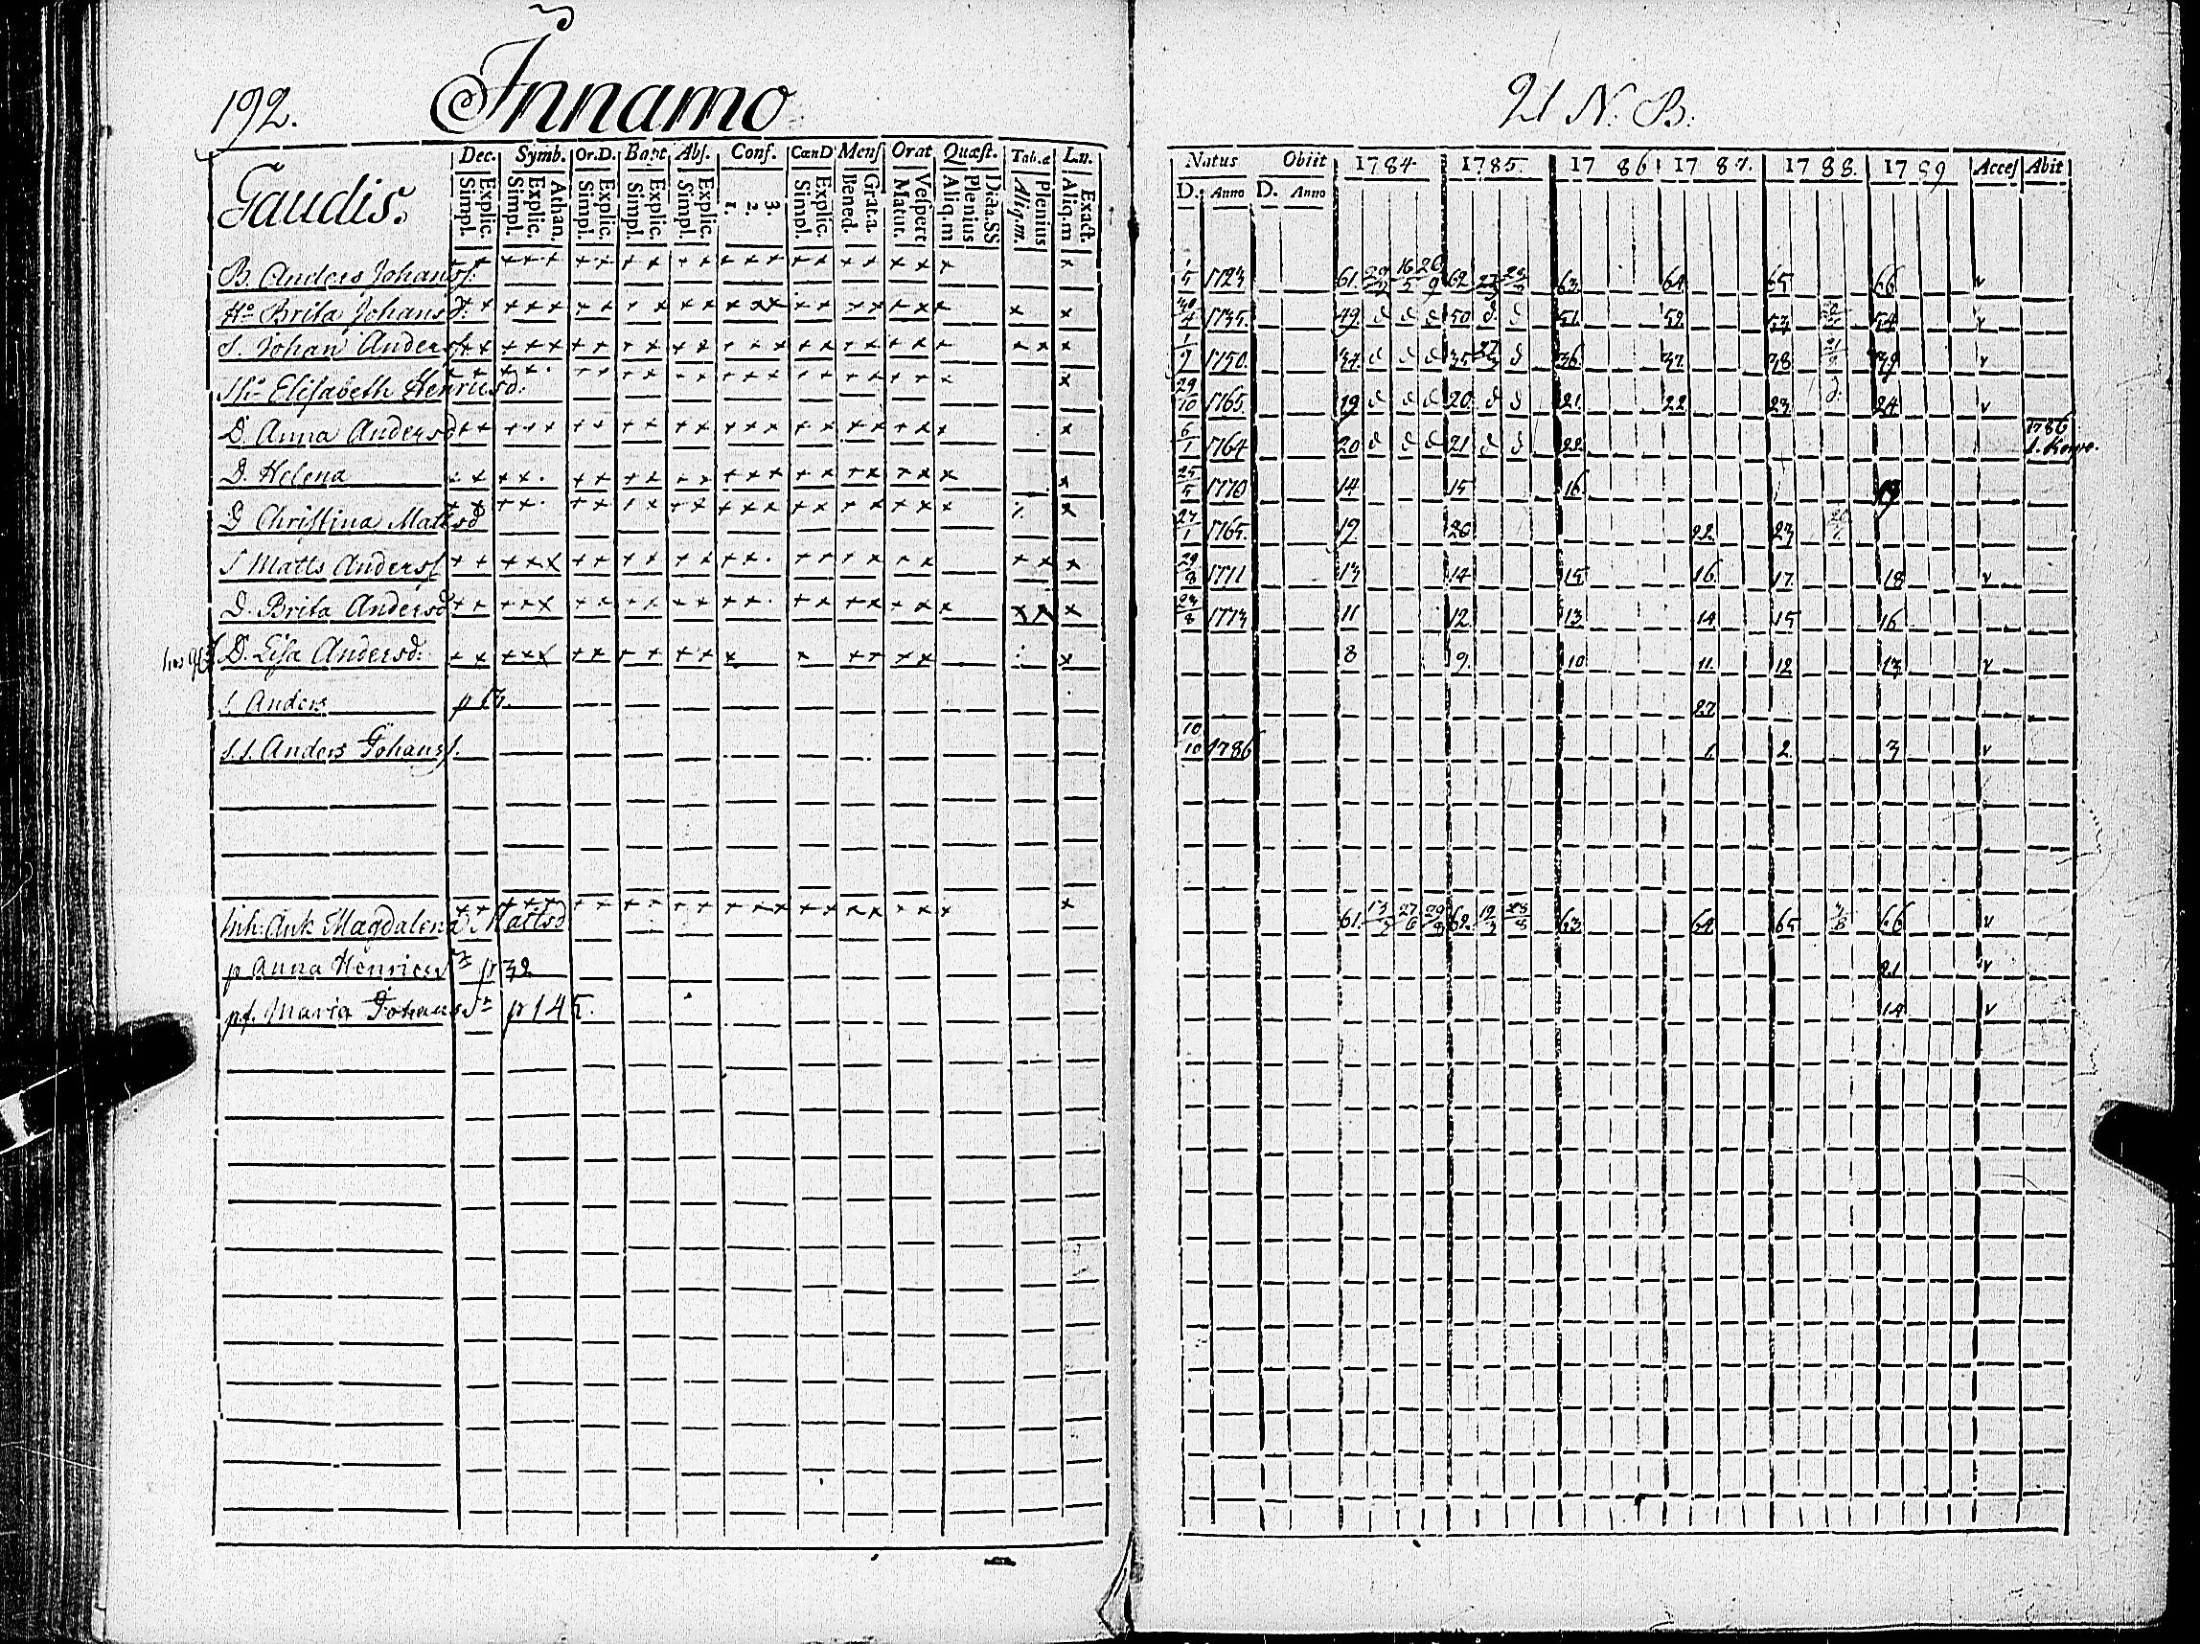 192. Innamo
Gaudis.
Dec. Symb. Or.D. Bapt Abs. Conf. CœnD Mens Orat Quæst. Tab.æ L.n.
Simpl. Explic. Simpl. Explic. Athan. Simpl. Explic. Simpl. Explic. Simpl. Explic. 1. 2. 3. Simpl. Explic. Bened. Grat.a. Matut. Vespert Aliq.m Plenius Dicta.SS Aliq.m. Plenius Aliq.m Exact.
B. Anders Johanss.
H:o Brita Johansd.
S. Johan Anderss.
Elisabeth Henricsd.
D. Anna Andersd
D. Helena
D Christina Mattsd
S Matts Anderss
D. Brita Andersd
D. Lisa Andersd.
S. Anders
S.S. Anders Johanss.
Inh: Ank Magdalena Mattsd
p Anna Henrics p 32
pf. Maria Johans p 145.
21 N. B.
Natus Obiit 1784 1785 1786 1787. 1788. 1789 Acces Abit
D. Anno D. Anno
1/5 1723 61 62 63 64 65 66 v
30/4 1735. 49 50 51 52 53 54 v
1/9 1750. 34 35 36 37 38 39 v
29/10 1765. 19 20 21 22 23 24 v
6/1 1764 20 21 22 1786
25/5 1770 14 15 16 19
27/1 1765. 19 20 22 23
29/8 1771 13 14 15 16 17 18 v
23/8 1773 11 12 13 14 15 16
8 9. 10 11. 12 13 v
27
10/10 1786 1. 2 3 v
61. 62. 63 64 65 66 v
21 v
14 v